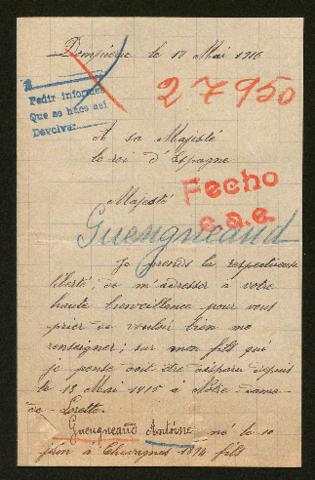 Dompierre le 17 Mai 1916
27950
Pedir informes
Que se hace así
Devolver
A sa Majesté
le roi d'Espagne
Majesté
Fecho
c.a.e.
Gueugneaud
Je prends la respectueuse
liberté, de m'adresser à votre
haute bienveillance pour vous
prier de vouloir bien me
renseigner; sur mon fils qui
je pense doit être disparu depuis
le 13 Mai 1915 à Notre-dame-
de-Lorette.
Gueugneaud Antoine né le 10
juin à Chevagnes 1894 fils